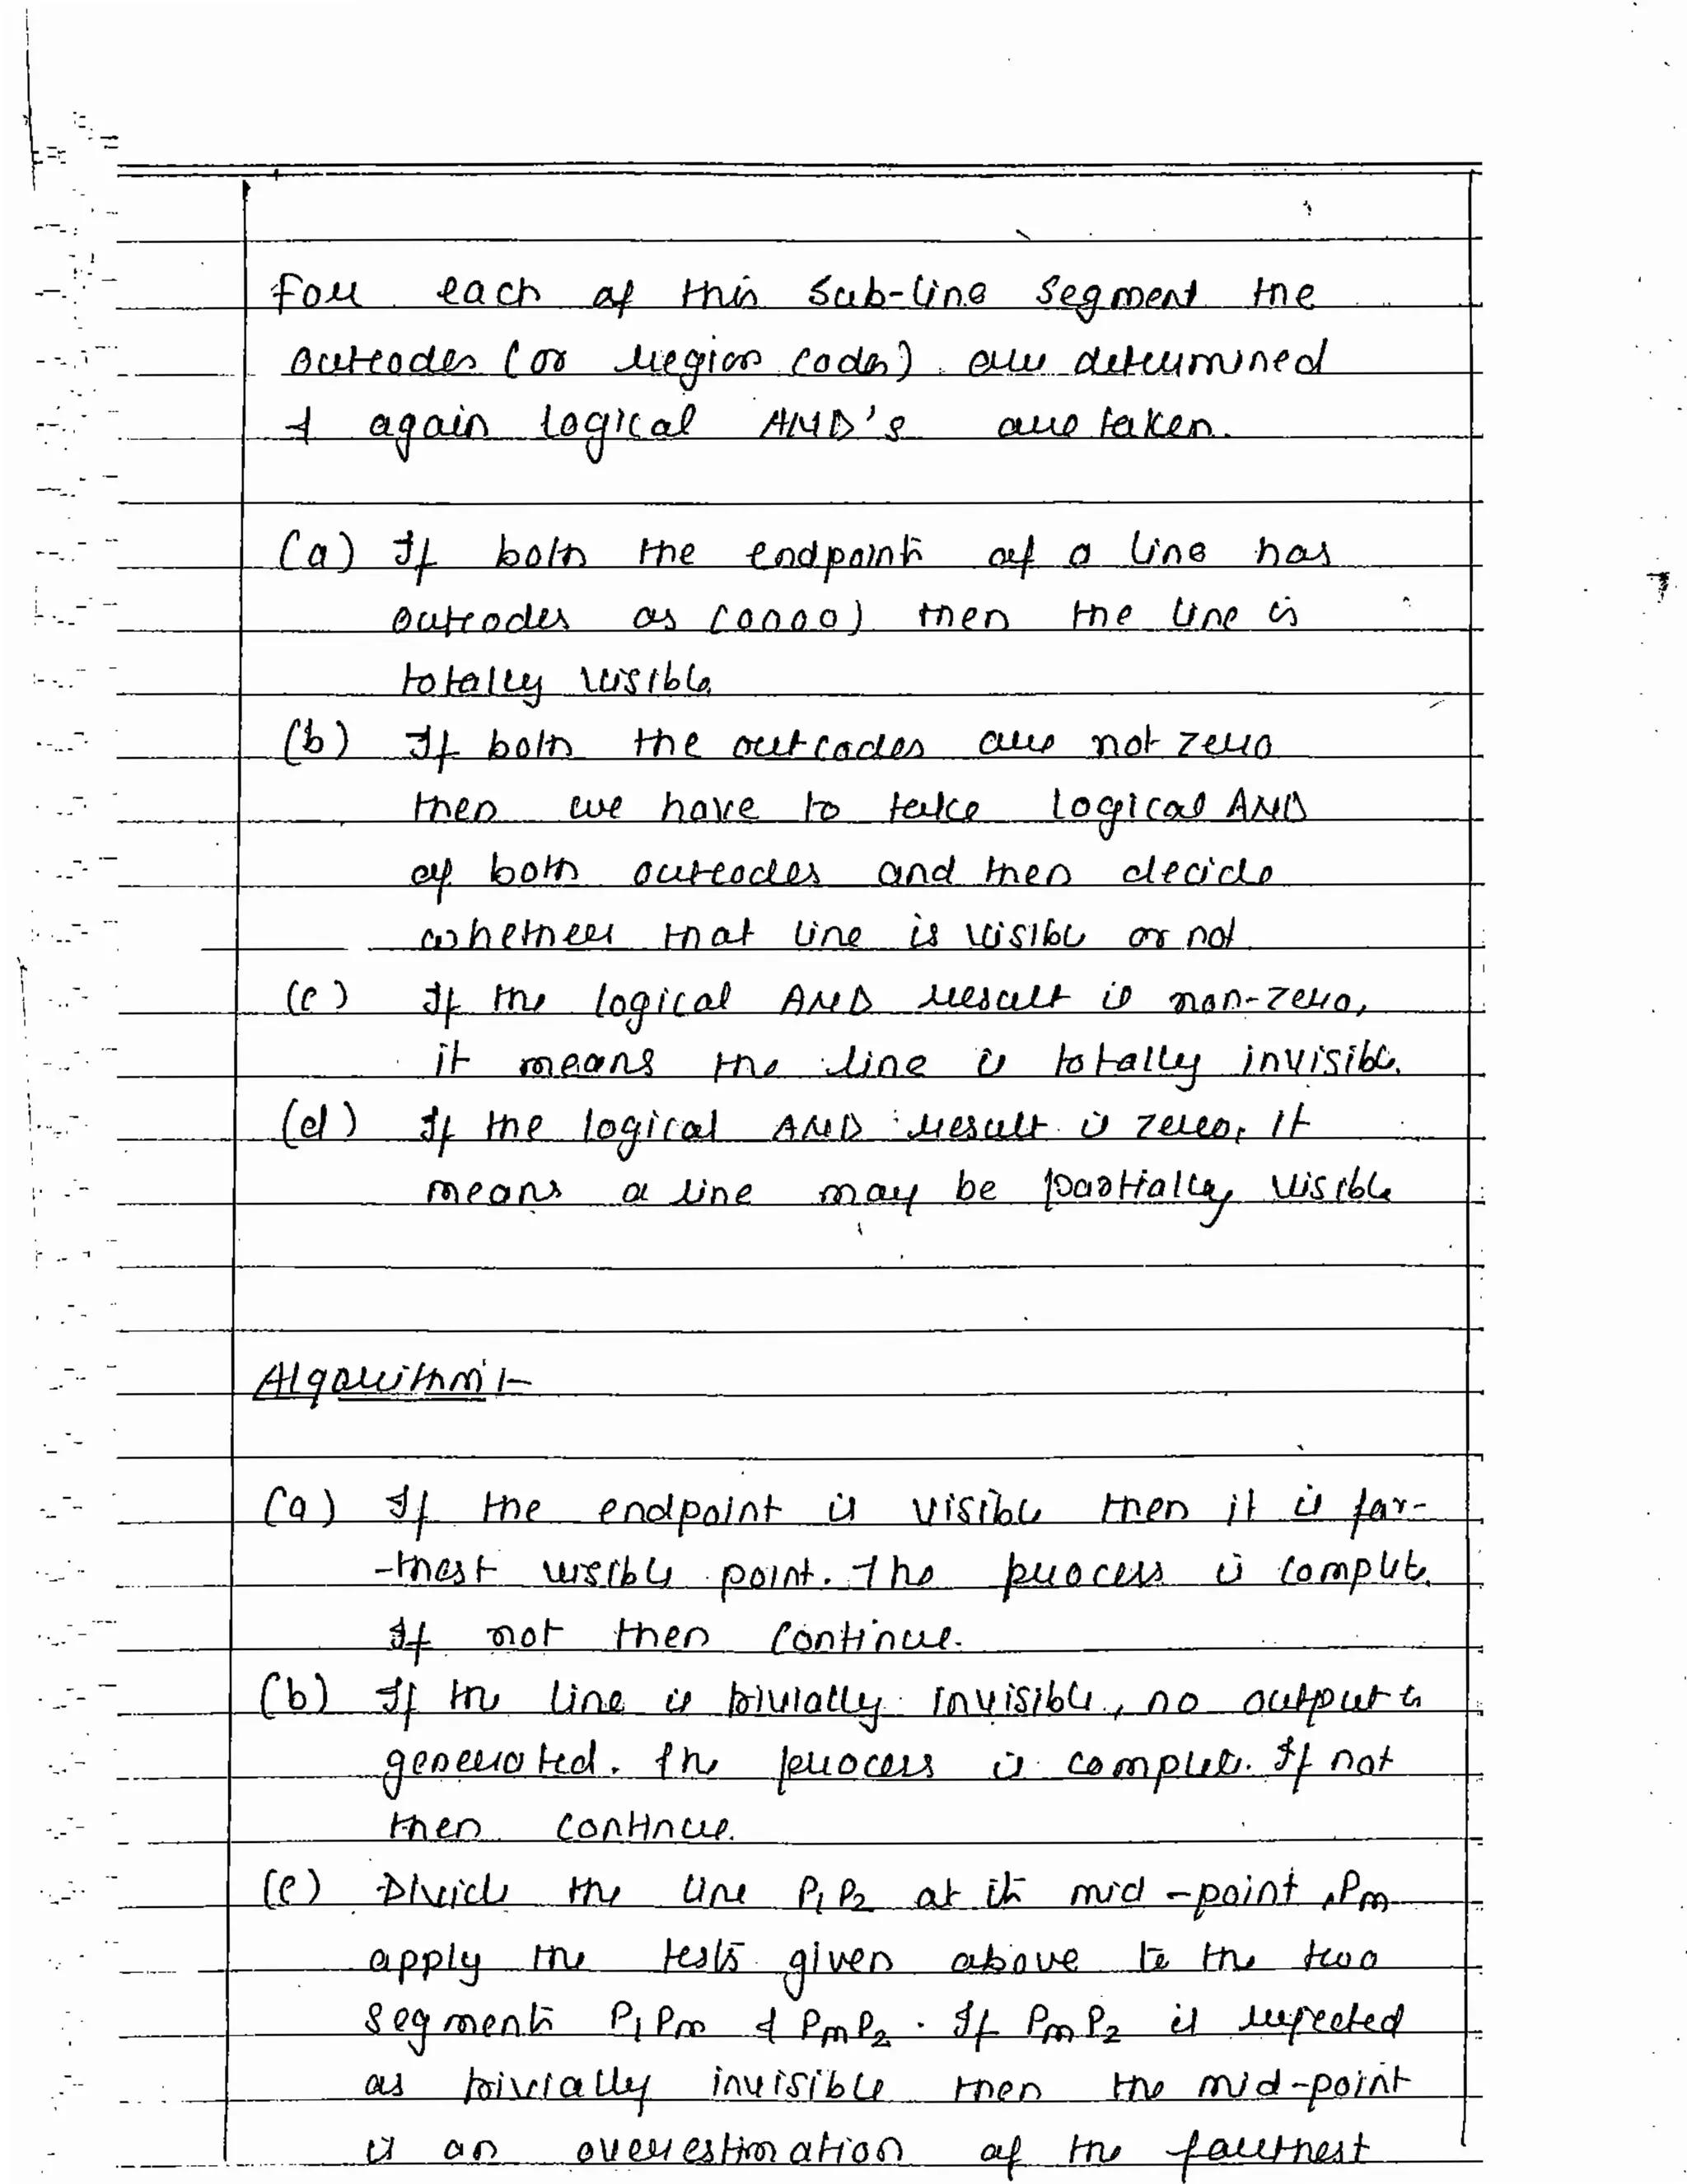 For each of this sub-line segment the
outcodes (or region codes) are determined
& again logical AND's are taken.
(a) If both the endpoints of a line has
outcodes as (0000) then the line is
totally visible
(b) If both the outcodes are not zero
then we have to take logical AND
of both outcodes and then decide
whether that line is visible or not.
(c) If the logical AND result is non-zero,
it means the line is totally invisible.
(d) If the logical AND result is zero, it
means a line may be partially visible
Algorithm :-
(a) If the endpoint is visible then it is far-
-thest visible point. The process is complete.
If not then continue.
(b) If the line is trivially invisible, no output is
generated. The process is complete. If not
then continue.
(c) Divide the line P1 P2 at its mid-point, Pm
apply the tests given above to the two
segments P1 Pm & Pm P2. If Pm P2 is rejected
as trivially invisible then the mid-point
is an overestimation of the farthest